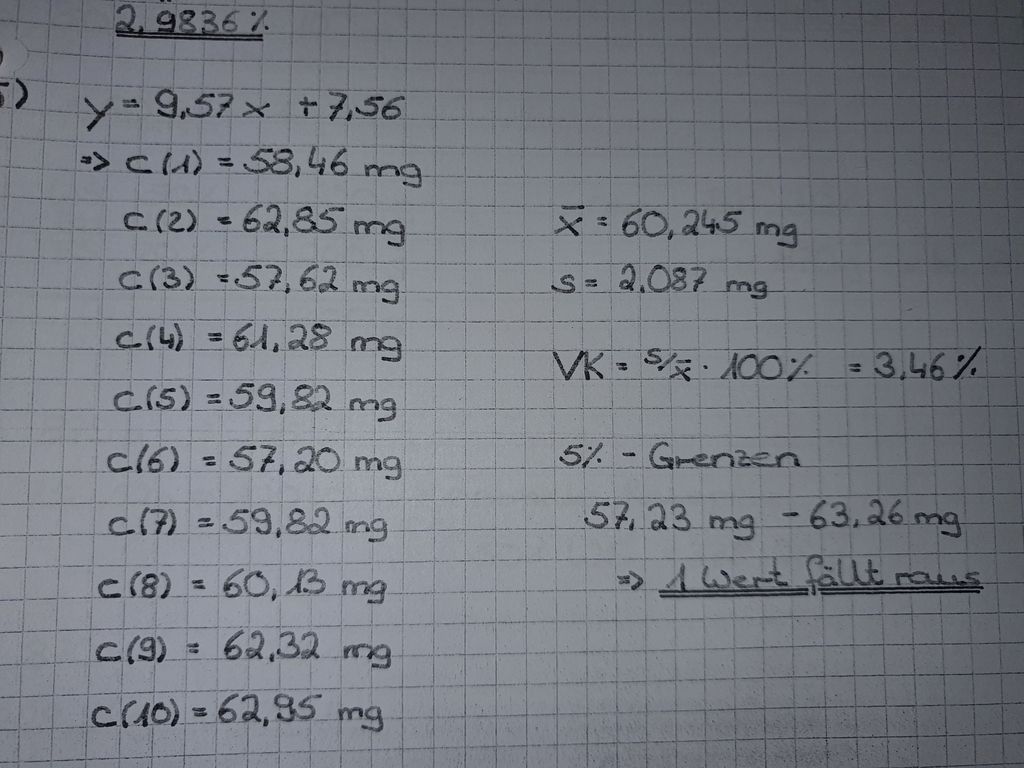 2,9836%
5)
y = 9,57x + 7,56
=> c(1) = 58,46 mg
c(2) = 62,85 mg
c(3) = 57,62 mg
c(4) = 61,28 mg
c(5) = 59,82 mg
c(6) = 57,20 mg
c(7) = 59,82 mg
c(8) = 60,13 mg
c(9) = 62,32 mg
c(10) = 62,95 mg
x̄ = 60,245 mg
s = 2,087 mg
VK = s/x̄ · 100% = 3,46%
5% - Grenzen
57,23 mg - 63,26 mg
=> 1 Wert fällt raus